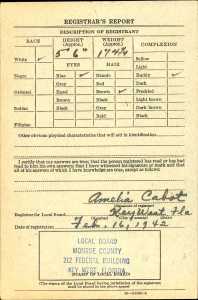 REGISTRAR'S REPORT
DESCRIPTION OF REGISTRANT
RACE HEIGHT (Approx.) WEIGHT (Approx.) COMPLEXION
5' 6" 174½
White ✓ Sallow
EYES HAIR Light
Negro Blue ✓ Blonde Ruddy ✓
Gray Red Dark
Oriental Hazel Brown ✓ Freckled
Brown Black Light brown
Indian Black Gray Dark brown
Bald Black
Filipino
Other obvious physical characteristics that will aid in identification
I certify that my answers are true; that the person registered has read or has had
read to him his own answers; that I have witnessed his signature or mark and that
all of his answers of which I have knowledge are true, except as follows:
Amelia Cabot
Registrar for Local Board Key West, Fla
Date of registration Feb. 16, 1942
LOCAL BOARD
MONROE COUNTY
212 FEDERAL BUILDING
KEY WEST, FLORIDA
(The stamp of the Local Board having jurisdiction of the registrant